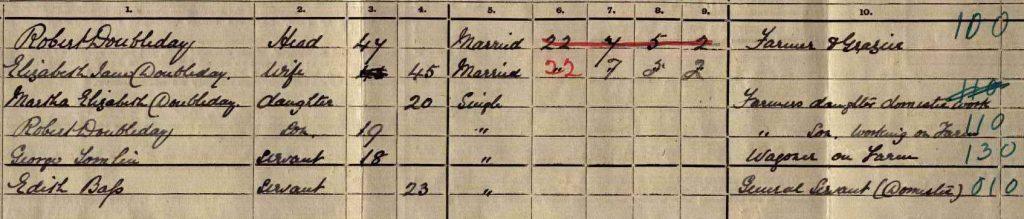 1. 2. 3. 4. 5. 6. 7. 8. 9. 10.
100
Robert Doubleday Head 47 Married 22 7 5 2 Farmer & Grazier
Elizabeth Jane Doubleday. Wife 45 Married 22 7 5 2
Martha Elizabeth Doubleday. daughter 20 Single Farmers daughter domestic work
Robert Doubleday Son. 19 " " Son. Working on Farm 110
George Tomlin Servant 18 " Wagoner on Farm 130
Edith Bass Servant 23 " General Servant (Domestic) 010